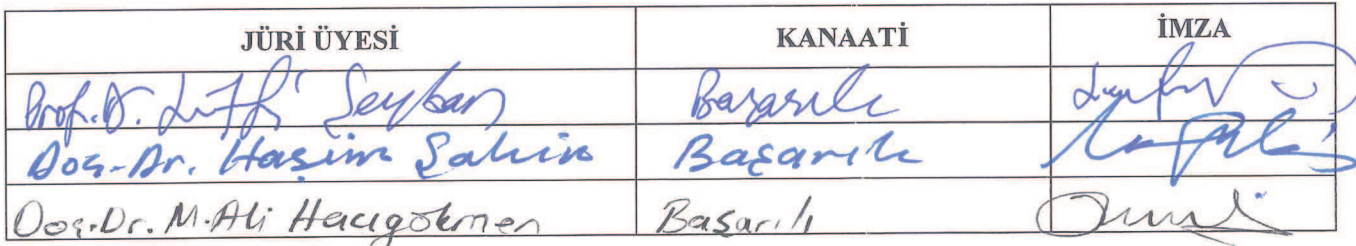 JÜRİ ÜYESİ KANAATİ İMZA
Prof. Dr. Lütfi Şeyban Başarılı
Doç. Dr. Haşim Şahin Başarılı
Doç. Dr. M. Ali Hacıgökmen Başarılı